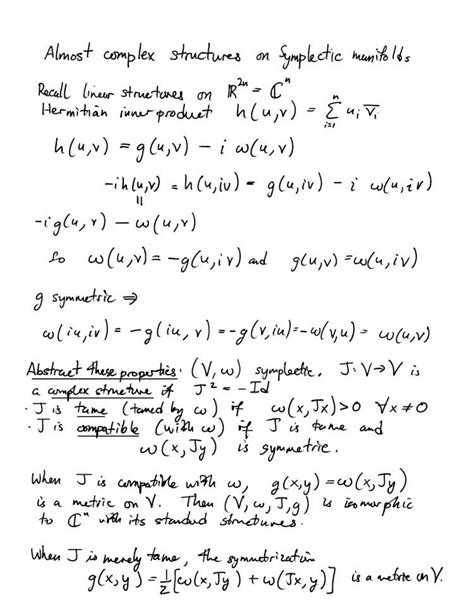 Almost complex structures on Symplectic manifolds
Recall linear structures on ℝ²ⁿ = ℂⁿ
Hermitian inner product h(u,v) = Σᵢ₌₁ⁿ uᵢ v̄ᵢ
h(u,v) = g(u,v) - i ω(u,v)
-ih(u,v) = h(u,iv) = g(u,iv) - i ω(u,iv)
=
-ig(u,v) - ω(u,v)
So ω(u,v) = -g(u,iv) and g(u,v) = ω(u,iv)
g symmetric ⇒
ω(iu,iv) = -g(iu,v) = -g(v,iu) = -ω(v,u) = ω(u,v)
Abstract these properties. (V,ω) symplectic. J: V→V is
a complex structure if J² = -Id
· J is tame (tamed by ω) if ω(x,Jx)>0 ∀x≠0
· J is compatible (with ω) if J is tame and
ω(x,Jy) is symmetric.
When J is compatible with ω, g(x,y) = ω(x,Jy)
is a metric on V. Then (V,ω,J,g) is isomorphic
to ℂⁿ with its standard structures.
When J is merely tame, the symmetrization
g(x,y) = ½[ω(x,Jy) + ω(Jx,y)] is a metric on V.